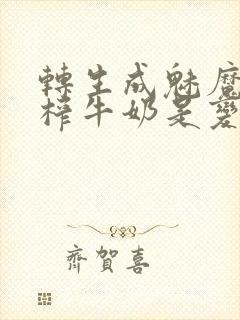 轉生成魅魔
榨牛奶是變
齊賀喜